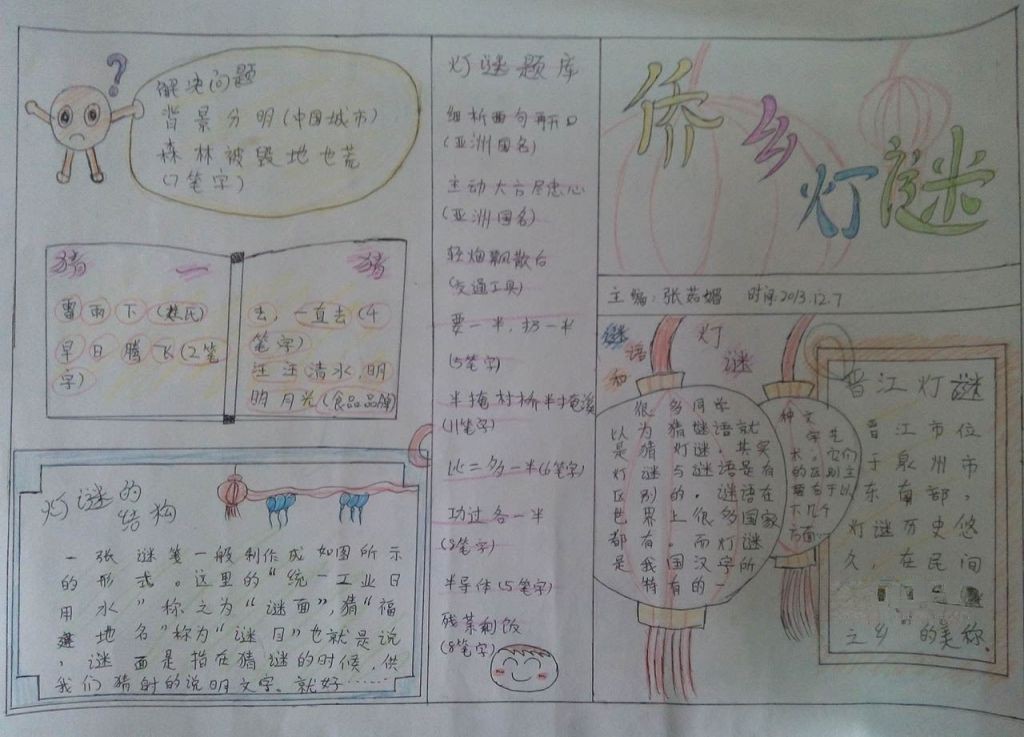 解决问题
背景分明(中国城市)
森林被毁地也荒
(7笔字)
猜一猜
雷雨下(姓氏)
早日腾飞(2笔
字)
去,一直去(4
笔字)
汪汪清水,明
明月光(食品品牌)
灯谜的
结构
一张谜笺一般制作成如图所示
的形式。这里的“统一工业日
用水”称之为“谜面”,猜“福
建地名”称为“谜目”也就是说
,谜面是指在猜谜的时候,供
我们猜射的说明文字。就好……
灯谜题库
细析两句再开口
(亚洲国名)
主动大言尽忠心
(亚洲国名)
轻烟飘散后
(交通工具)
要一半,扔一半
(5笔字)
半掩村桥半掩溪
(11笔字)
比二多一半(6笔字)
功过各一半
(8笔字)
半导体(5笔字)
残菜剩饭
(8笔字)
侨乡灯谜
主编:张茹媚 时间:2013.12.7
谜语和灯谜
很多同学
以为猜谜语就
是猜灯谜。其实
灯谜与谜语是有
区别的。谜语在
世界上很多国家
都有。而灯谜
是我国汉字所
特有的一
种文
字艺
术。它们
的区别主
要在于以
下几个
方面…
晋江灯谜
晋江市位
于泉州市
东南部,
灯谜历史悠
久,在民间
之乡的美称。